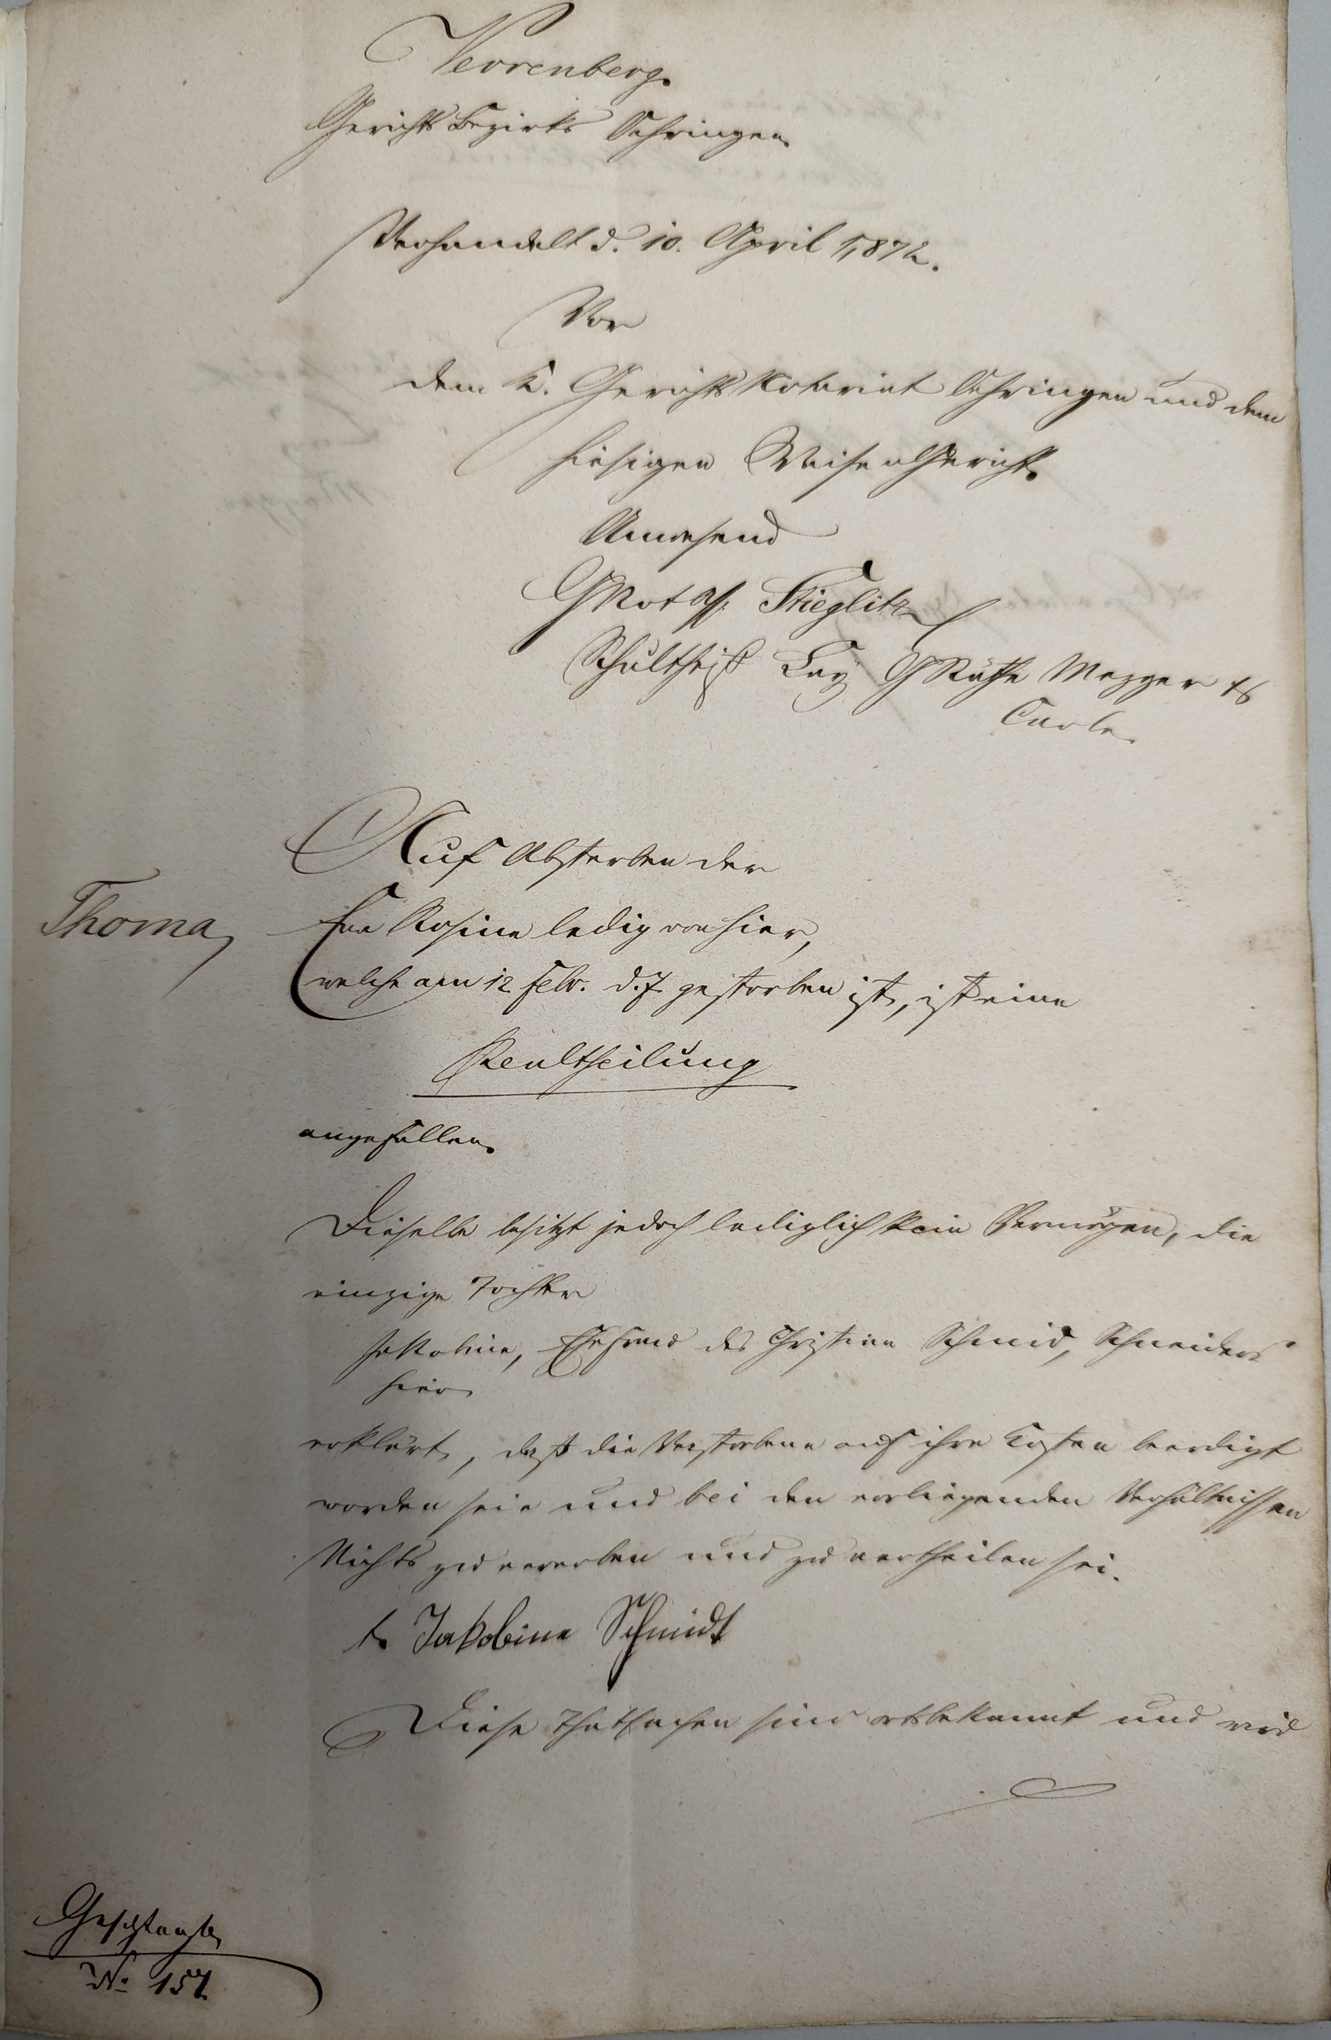 Verrenberg
Gerichts Bezirks Oehringen
Verhandelt d. 10. April 1872.
Vor
dem K. Gerichts Notariat Oehringen und dem
hiesigen Waisengericht
Anwesend
GNot Ass. Stieglitz
Schultheiß Lay GRäthe Mezger &
Carle
Auf Absterben der
Thoma, Eva Rosina ledig von hier,
welche am 12 Febr. d. J. gestorben ist, ist eine
Realtheilung
angefallen
Dieselbe besitzt jedoch lediglich kein Vermögen, die
einzige Tochter
Jakobine, Ehefrau des Christian Schmid, Schneiders
hier
erklärt, daß die Verstorbene auf ihre Kosten beerdigt
worden seie und bei den vorliegenden Verhältnissen
Nichts zu ererben und zu vertheilen sei.
t. Jakobine Schmidt
Diese Thatsachen sind ortsbekannt und wird
No. 157